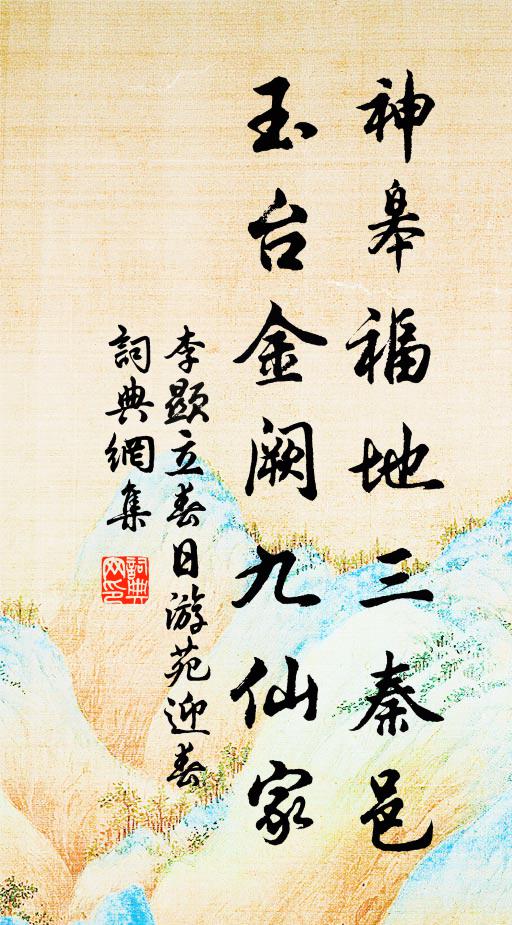 神皋福地三秦邑
玉台金阙九仙家
李顯立春日游苑迎春
詞典網集
詞典
网印